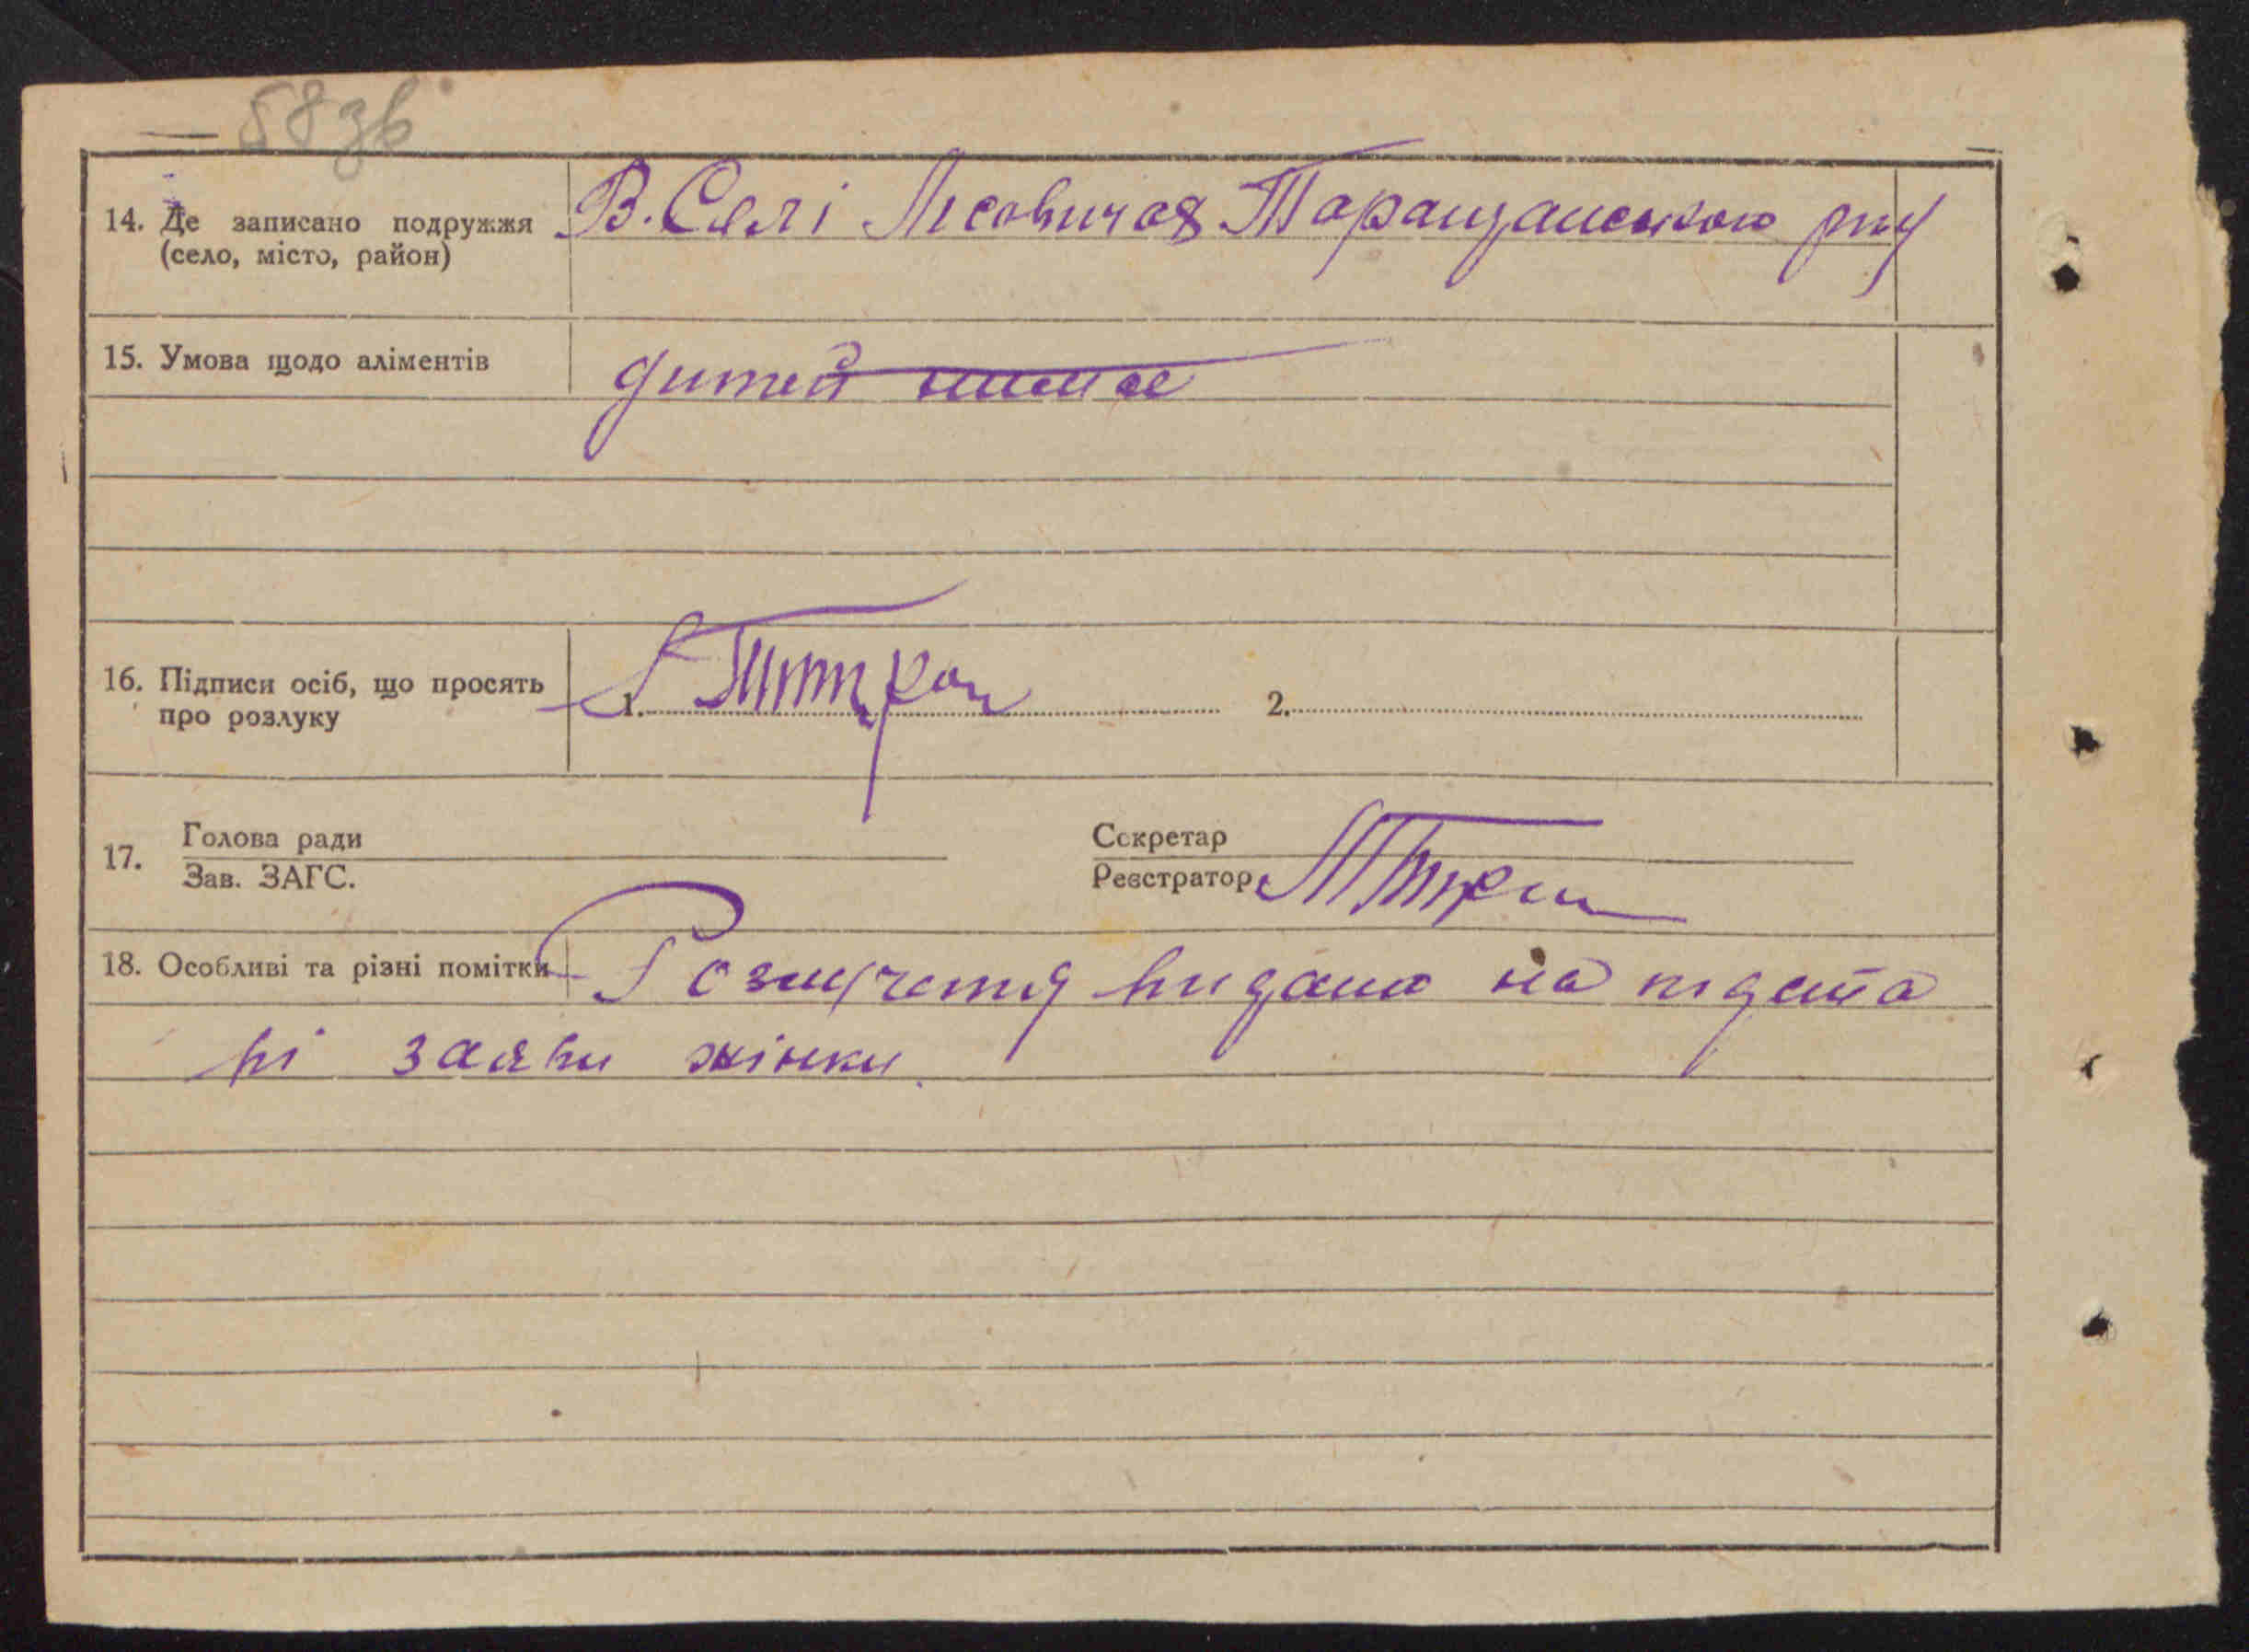 58 зв
14. Де записано подружжя (село, місто, район) В. Селі Лісовичах Таращанського р-ну
15. Умова щодо аліментів дитей нимае
16. Підписи осіб, що просять про розлуку 1. 2.
17. Голова ради Секретар
Зав. ЗАГС. Реєстратор
18. Особливі та різні помітки Розлучення видана на підста
ві заяви жінки.